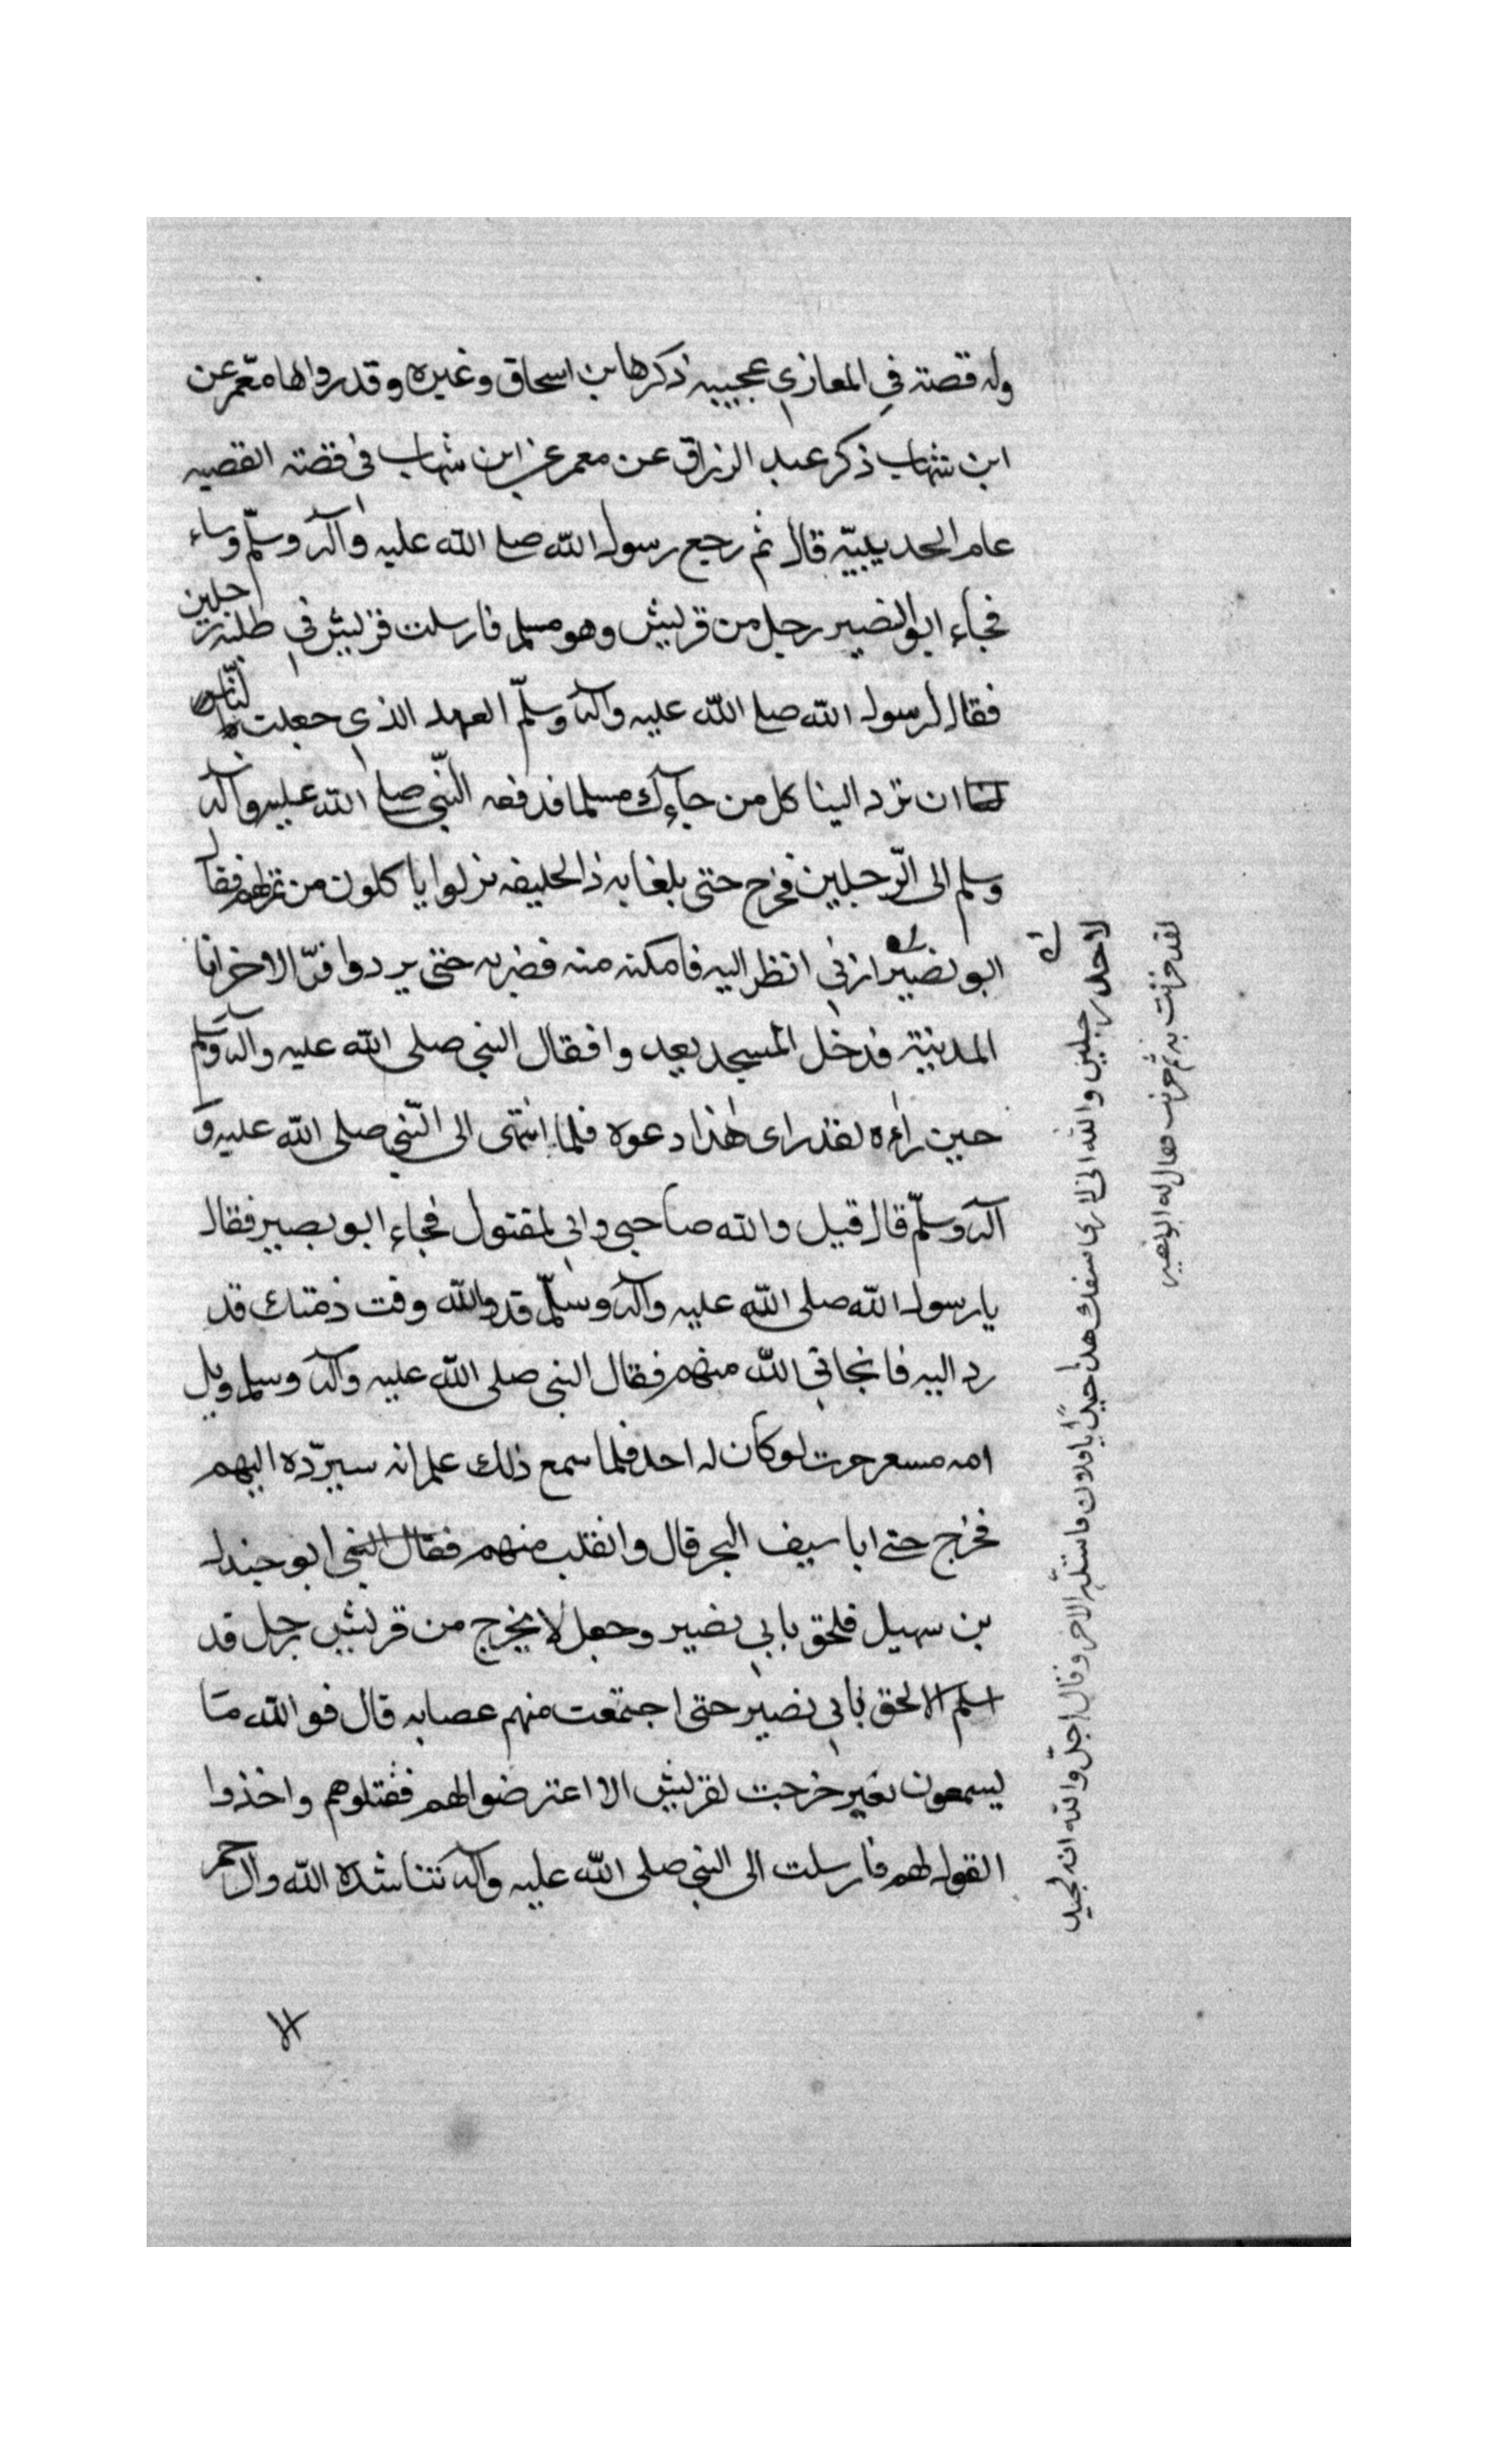 وله قصته في المغازي عجيبيه ذكرها بن اسحاق وغيره وقد رواها معمر عن
ابن شهاب ذكر عبد الرزاق عن معمر عن ابن شهاب في قصته القصيه
عام الحديبيّة قال ثم رجع رسول الله صلع الله عليه وآله وسلّم وساء
فجاء ابو النصير رجل من قريش وهو مسلم فارسلت قريش في طلبه رجلين
فقال لرسول الله صلع الله عليه وآله وسلّم العهد الذي جعلت لنا
ان ترد الينا كل من جاءك مسلما فدفعه النّبي صلع الله عليه وآله
وسلم الى الرّجلين فخرج حتى بلغا به ذا الحليفه نزلوا ياكلون من تمر لهم فقال
ابو نصير ارني انظر اليه فامكنه منه فضربه حتى يردوا فرّ الاخر اتا
المدينة فدخل المسجد يعدوا فقال النبي صلى الله عليه وآله وسلم
حين راءه لقد راى هذا دعوه فلما انتهى الى النّبي صلى الله عليه و
آله وسلّم قال قيل والله صاحبي واني لمقتول فجاء ابو بصير فقال
يا رسول الله صلى الله عليه وآله وسلّم قد والله وفت ذمتك قد
رد اليه فانجاني الله منهم فقال النبي صلى الله عليه وآله وسلم ويل
امه مسعر حرب لو كان له احد فلما سمع ذلك علم انه سيردّه اليهم
فخرج حتى اتا سيف البحر قال وانفلب منهم فقال النبي ابو جندل
بن سهيل فلحق بابي نصير وجعل لا يخرج من قريش رجل قد
اسلم الا لحق بابي نصير حتى اجتمعت منهم عصابه قال فوالله ما
يسمعون بعير خرجت لقريش الا اعترضوا لهم فقتلوهم واخذوا
القوله لهم فارسلت الى النبي صلى الله عليه وآله تناشده الله والرحم
لاحد رجلين والله اني لا رى سفك هذا جيدًا يا فلان فاستلّه الاخر وقال اجل والله انه لجيد
لقد جربت به ثم جربت فقال له ابو نصير